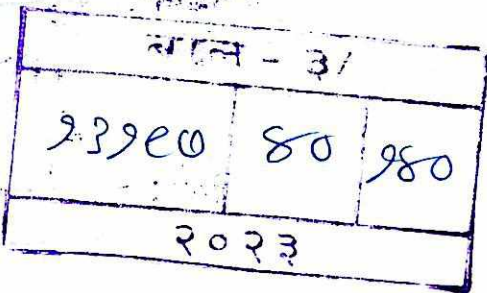 - ३/
१३१९७ ४० १४०
२०२३